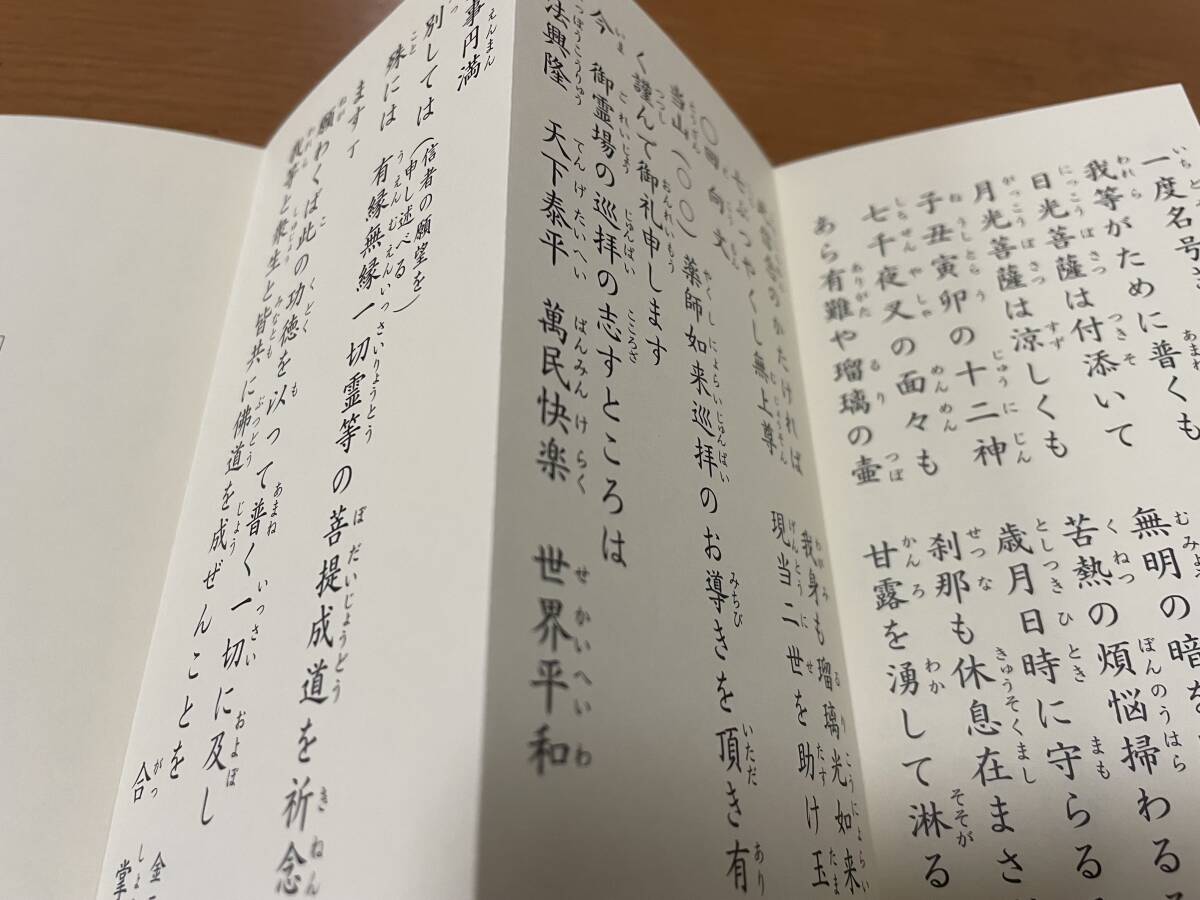 一度名号
我等がために普くも
無明の暗
日光菩薩は付添いて
苦熱の煩悩掃わる
月光菩薩は涼しくも
歳月日時に守らる
子丑寅卯の十二神
刹那も休息在まさ
七千夜叉の面々も
甘露を湧して淋る
あら有難や瑠璃の壷
我身も瑠璃光如来
のかたければ
現当二世を助け玉
七ぶつやくし無上尊
〇回向文
当山(〇〇)薬師如来巡拝のお導きを頂き有
く謹んで御礼申します
今 御霊場の巡拝の志すところは
法興隆 天下泰平 萬民快楽 世界平和
事円満
別しては(信者の願望を申し述べる)
殊には 有縁無縁一切霊等の菩提成道を祈念
ます
願わくば此の功徳を以って普く一切に及し
我等と衆生と皆共に佛道を成ぜんことを
合
掌